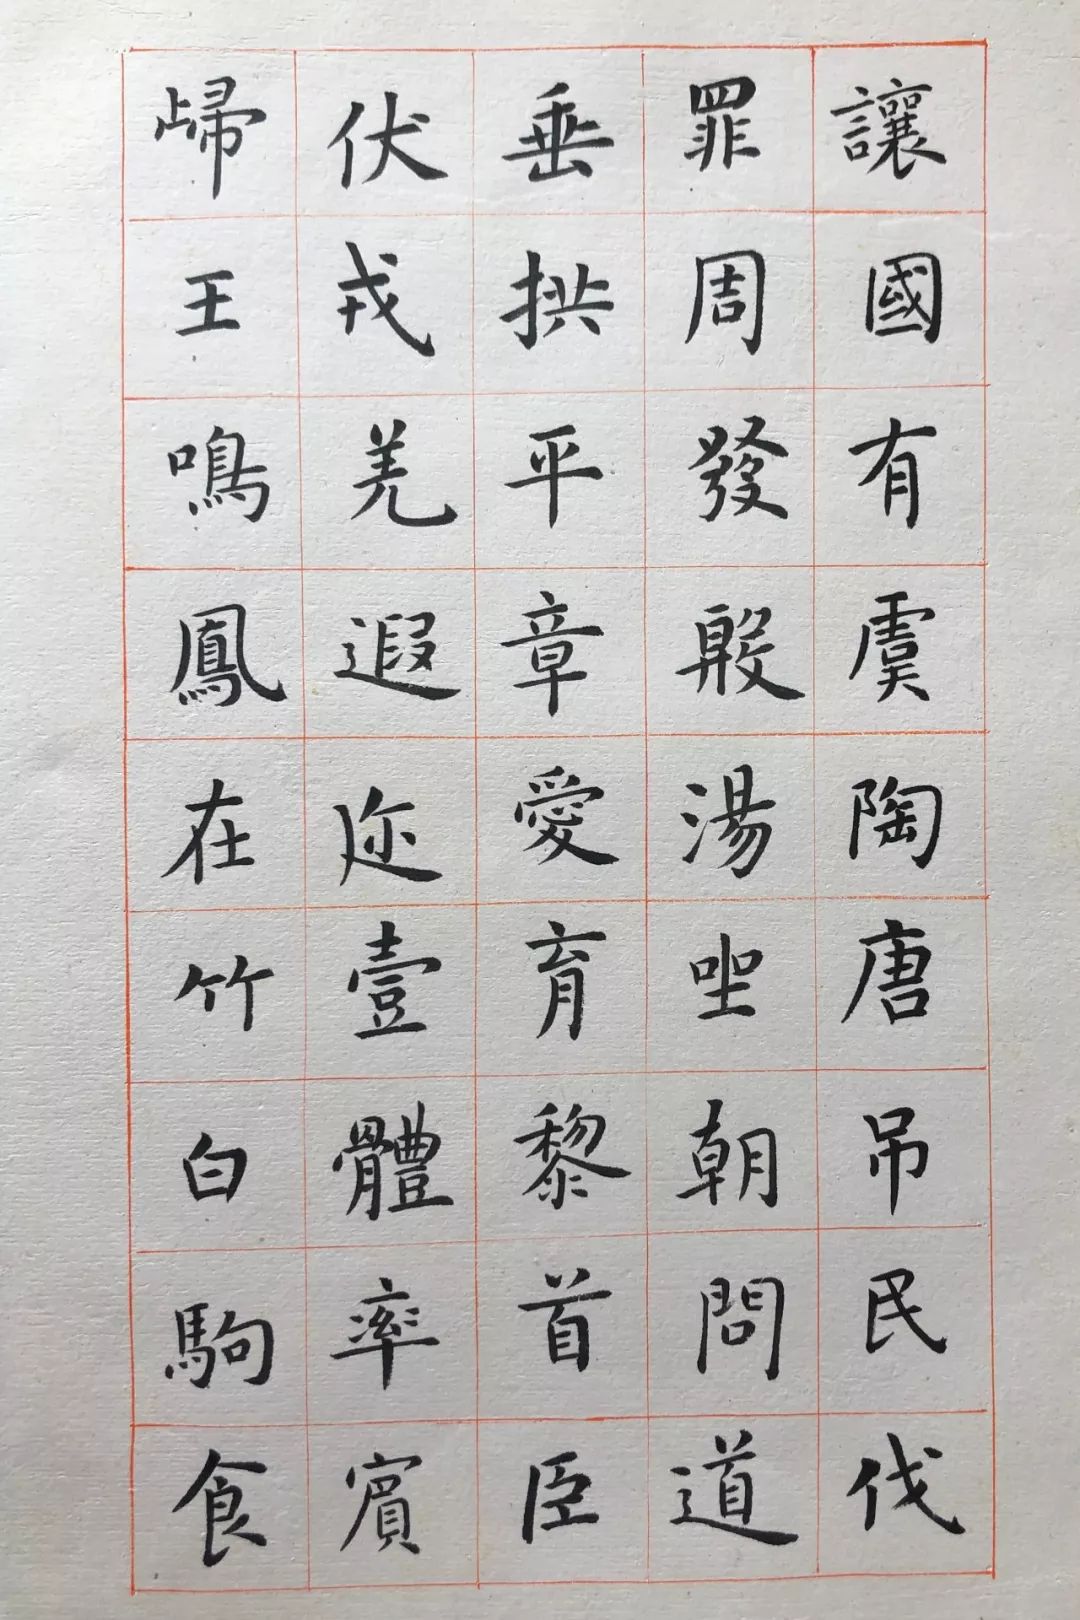 讓國有虞陶唐吊民伐
罪周發殷湯坐朝問道
垂拱平章愛育黎首臣
伏戎羌遐迩壹體率賓
歸王鳴鳳在竹白駒食